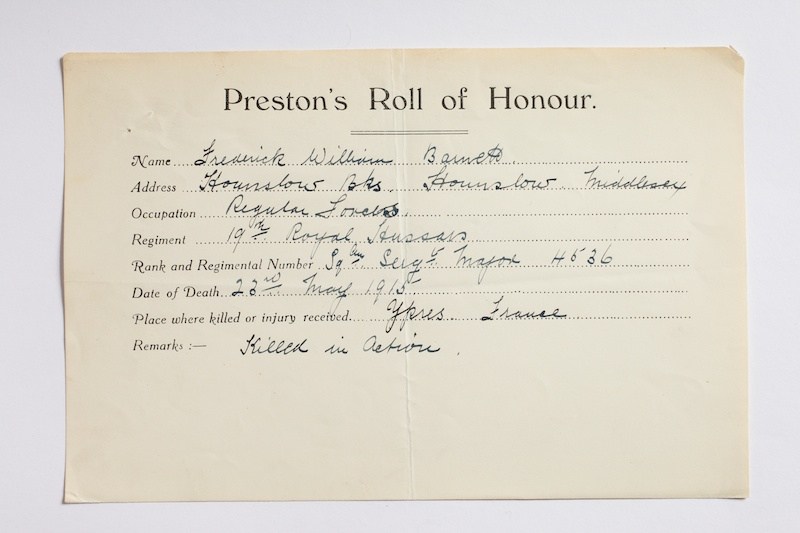 Preston's Roll of Honour.
Name Frederick William Barnett.
Address Hounslow Bks. Hounslow Middlesex
Occupation Regular Forces.
Regiment 19th Royal Hussars
Rank and Regimental Number Sqdn Sergt Major 4536
Date of Death 23rd May 1915
Place where killed or injury received. Ypres France
Remarks :— Killed in Action.